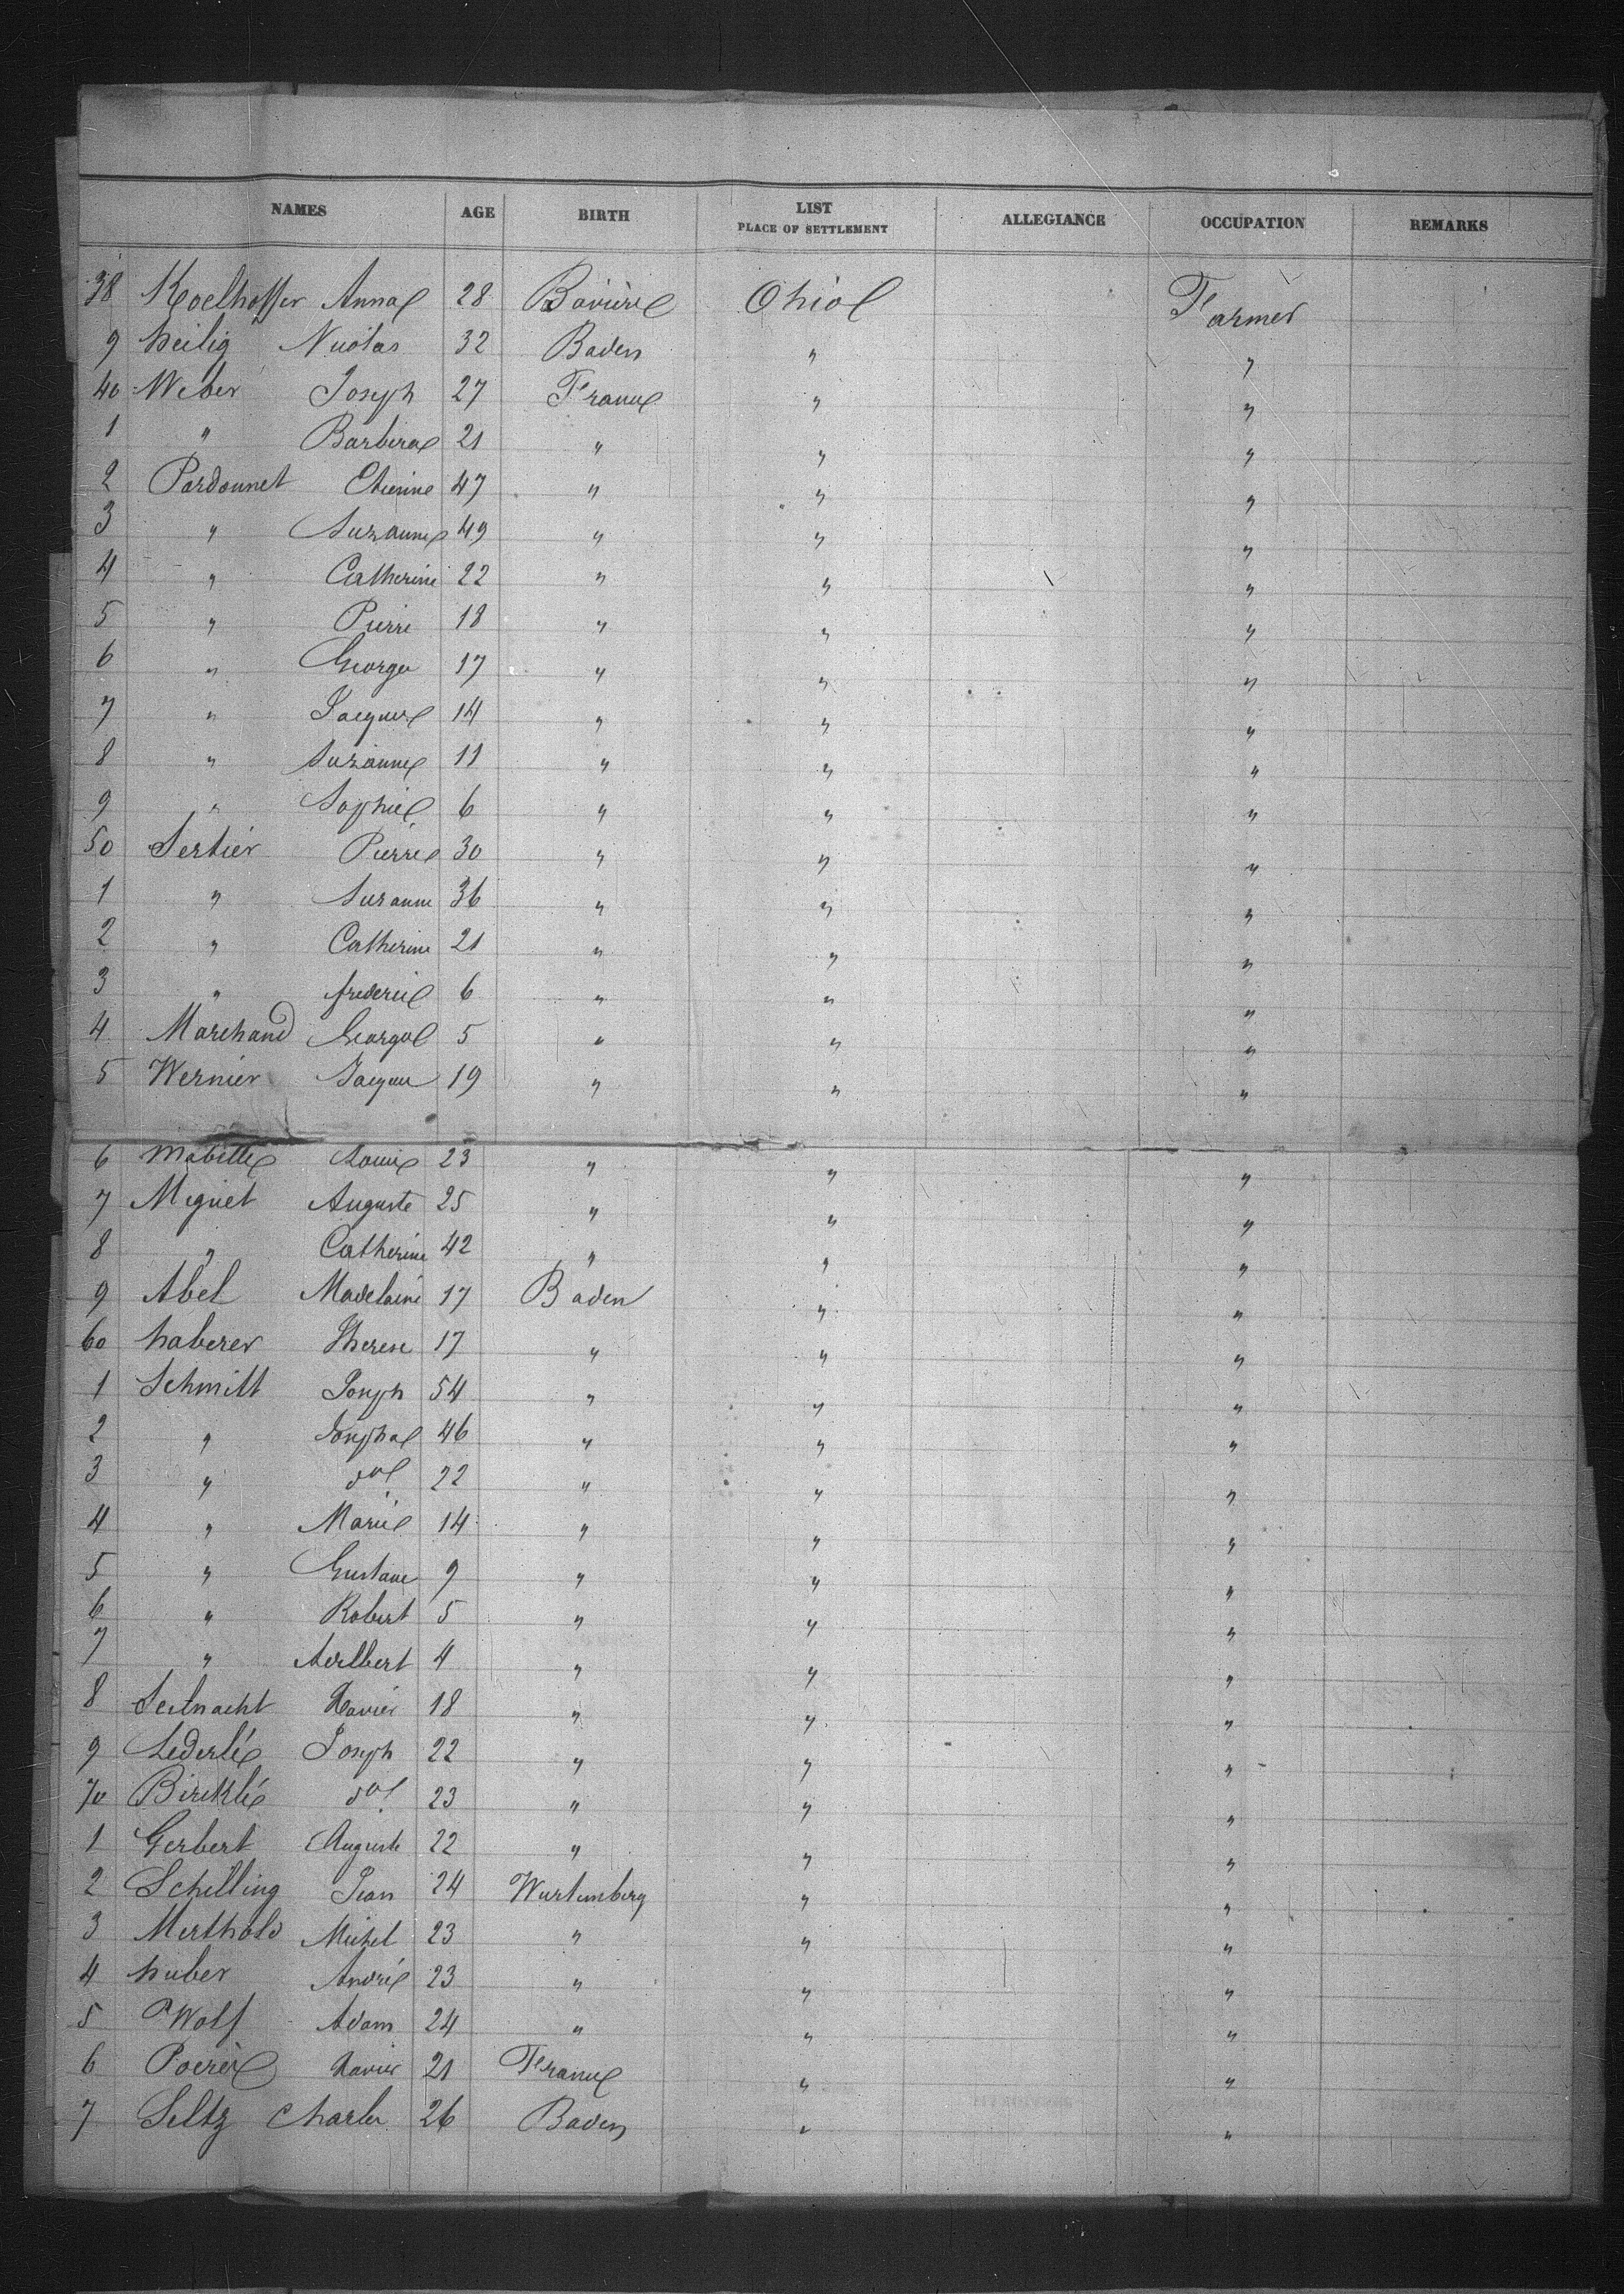 NAMES AGE BIRTH LIST PLACE OF SETTLEMENT ALLEGIANCE OCCUPATION REMARKS
38 Koelhoffer Anna 28 Bavière Ohio Farmer
9 heilig Nicolas 32 Baden " "
40 Weber Joseph 27 France " "
1 " Barbera 21 " " "
2 Pardonnet Etienne 47 " " "
3 " Suzanne 49 " " "
4 " Catherine 22 " " "
5 " Pierre 18 " " "
6 " George 17 " " "
7 " Jacques 14 " " "
8 " Suzanne 11 " " "
9 " Sophie 6 " " "
50 Sertier Pierre 30 " " "
1 " Suzanne 36 " " "
2 " Catherine 21 " " "
3 " frederic 6 " " "
4 Marchand George 5 " " "
5 Wernier Jacques 19 " " "
6 Mabille Louis 23 " " "
7 Miguet Auguste 25 " " "
8 " Catherine 42 " " "
9 Abel Madelaine 17 Baden " "
60 haberer Therese 17 " " "
1 Schmitt Joseph 54 " " "
2 " Josepha 46 " " "
3 " do 22 " " "
4 " Marie 14 " " "
5 " Gustave 9 " " "
6 " Robert 5 " " "
7 " Adelbert 4 " " "
8 Seilnacht Xavier 18 " " "
9 Lederlé Joseph 22 " " "
70 Bircklé do 23 " " "
1 Gerbert Auguste 22 " " "
2 Schilling Jean 24 Wurtemberg " "
3 Merthold Michel 23 " " "
4 huber André 23 " " "
5 Wolf Adam 24 " " "
6 Xavier 21 France " "
7 Seltz Charles 26 Baden " "